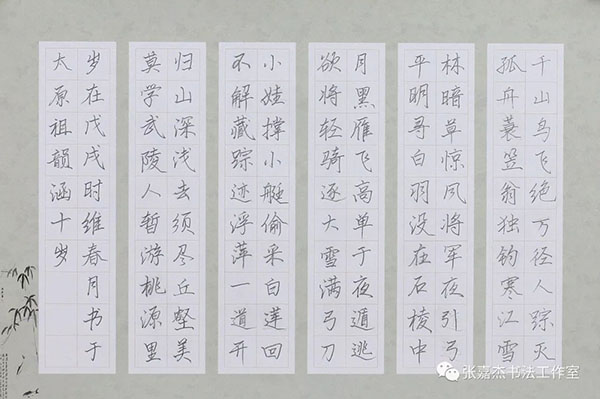 千山鸟飞绝万径人踪灭
孤舟蓑笠翁独钓寒江雪
林暗草惊风将军夜引弓
平明寻白羽没在石棱中
月黑雁飞高单于夜遁逃
欲将轻骑逐大雪满弓刀
小娃撑小艇偷采白莲回
不解藏踪迹浮萍一道开
归山深浅去须尽丘壑美
莫学武陵人暂游桃源里
岁在戊戌时维春月书于
太原祖韻涵十岁
张嘉杰书法工作室